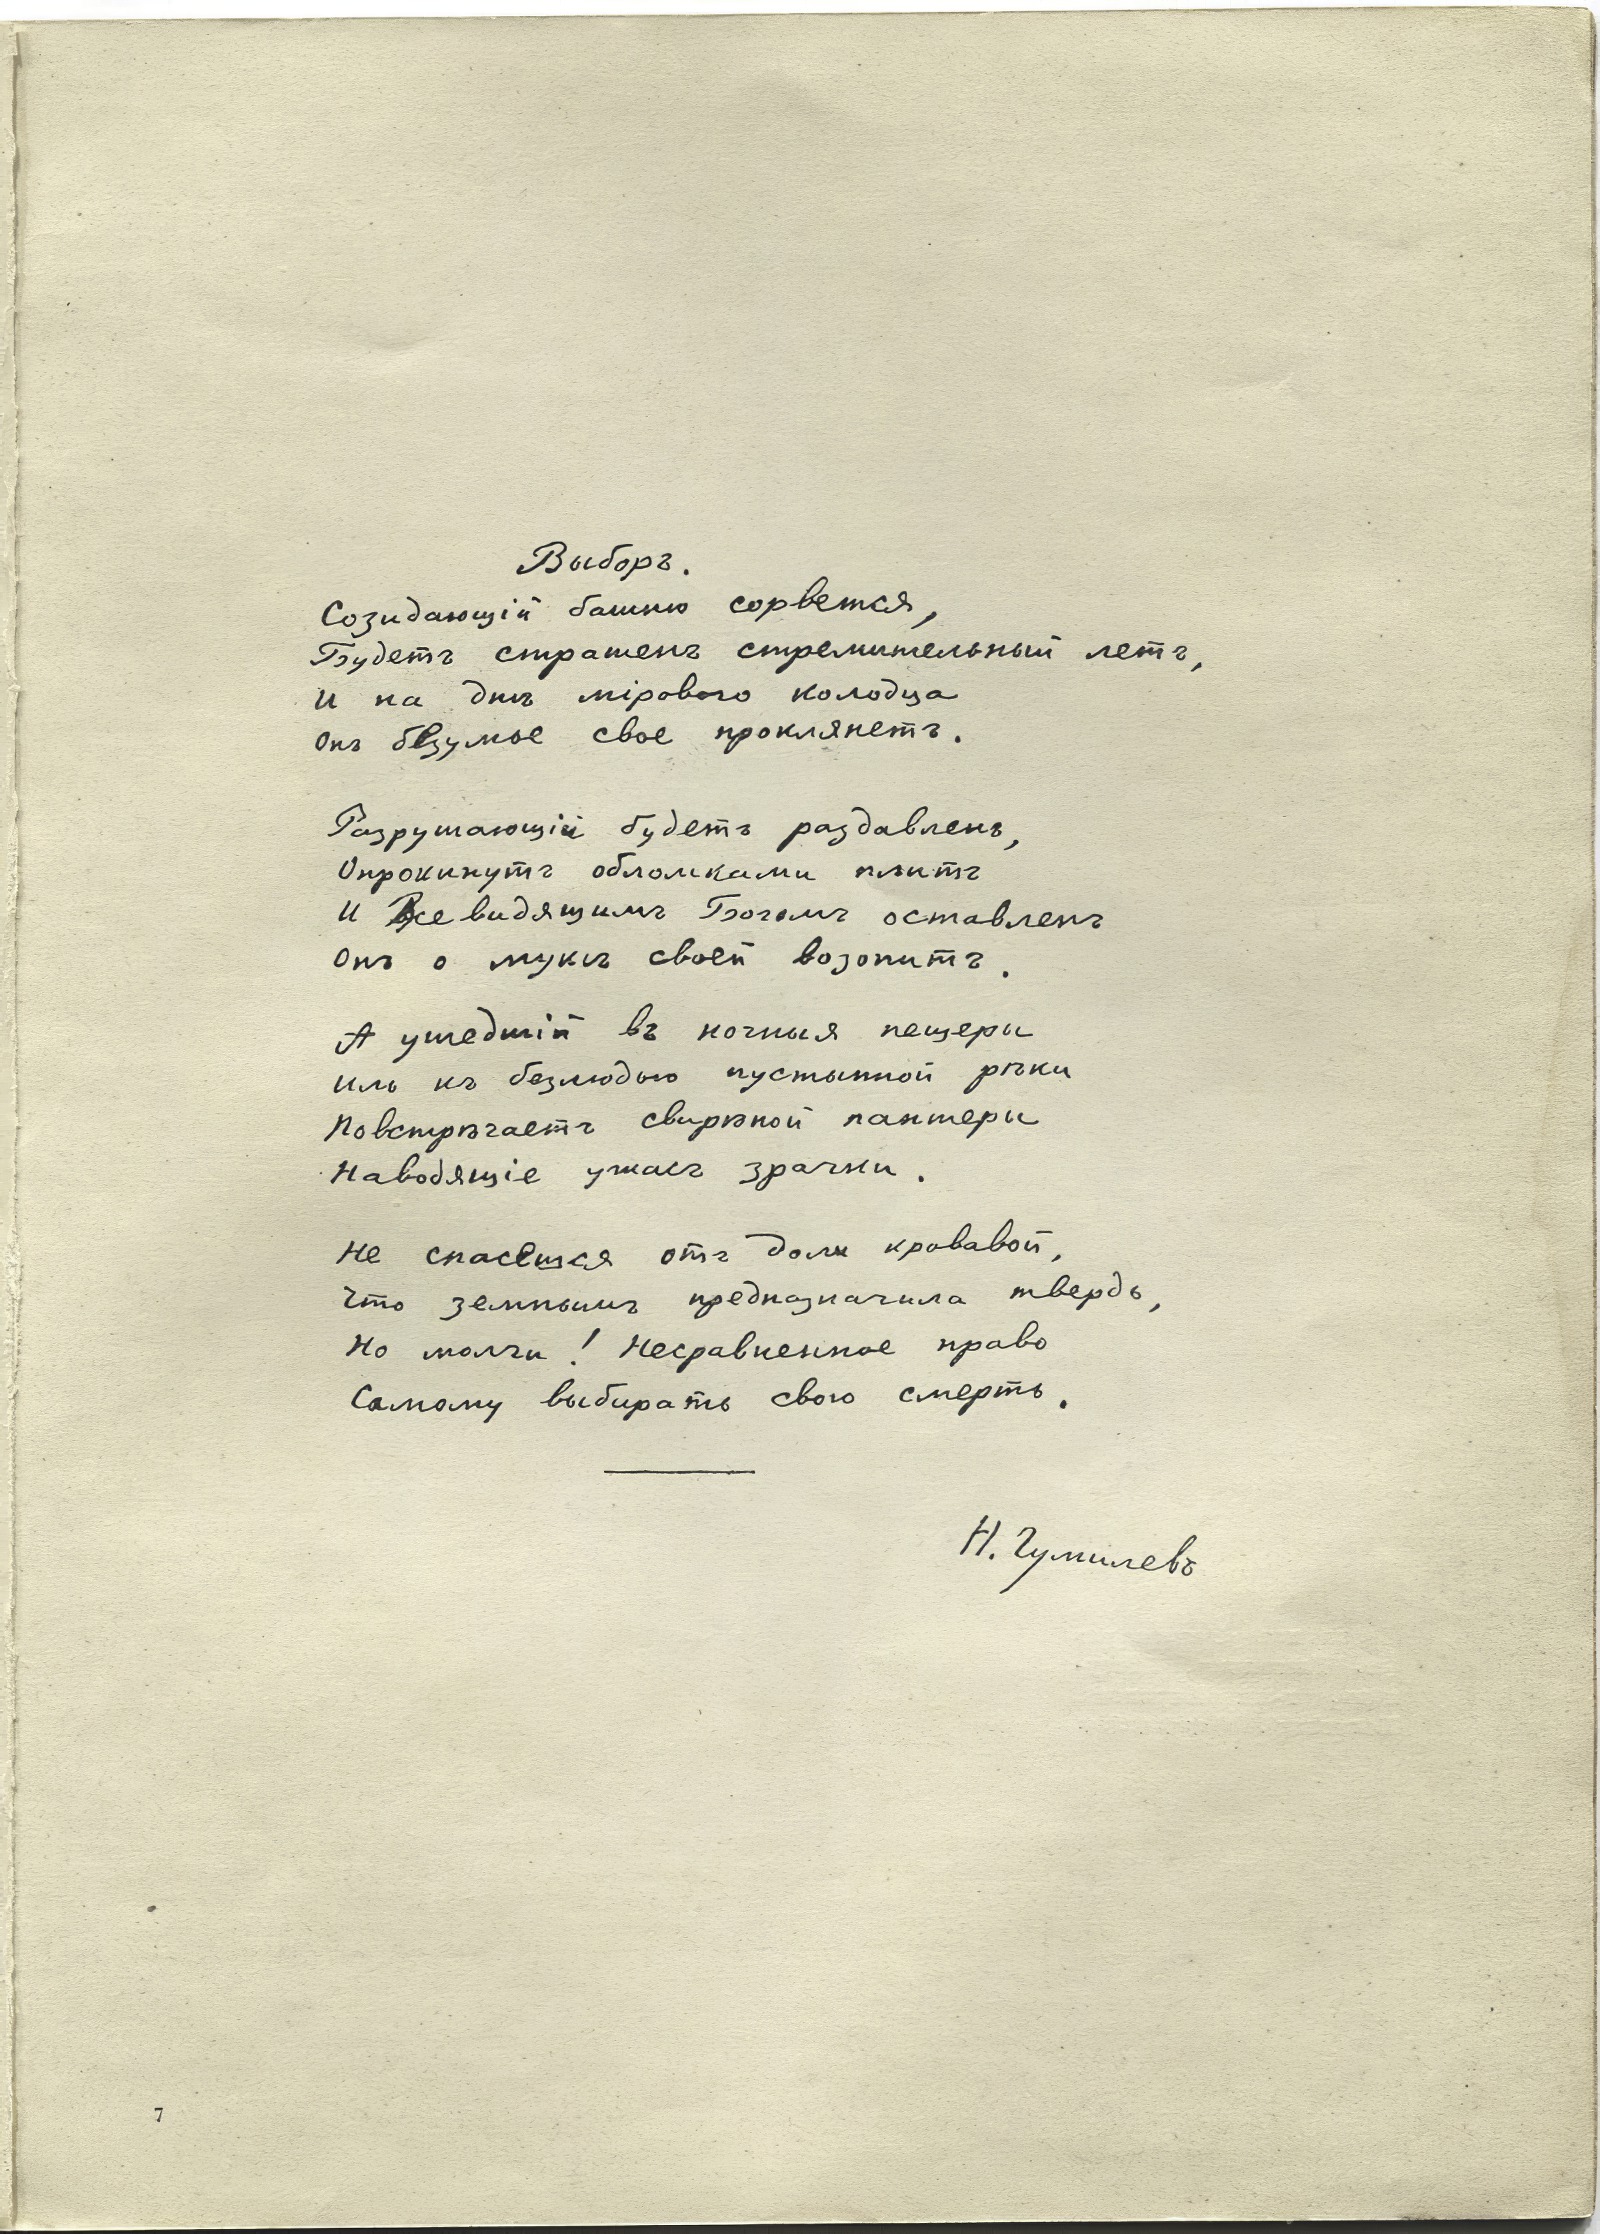 Выборъ.
Созидающій башню сорвется,
Будетъ страшенъ стремительный летъ,
И на днѣ мірового колодца
Онъ безумье свое проклянетъ.
Разрушающій будетъ раздавленъ,
Опрокинутъ обломками плитъ
И Всевидящимъ Богомъ оставленъ
Онъ о мукѣ своей возопитъ.
А ушедшій въ ночныя пещеры
Иль къ безлюдью пустынной рѣки
Повстрѣчаетъ свирѣпой пантеры
Наводящіе ужасъ зрачки.
Не спасешся отъ доли кровавой,
Что земнымъ предназначила твердь,
Но молчи! Несравненное право
Самому выбирать свою смерть.
Н. Гумилевъ
7